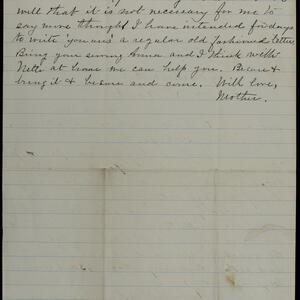 well that it is not necessary for me to
say more though I have intended for days
to write you and a regular old fashioned letter
Bring your sewing Anna and I think with
Nette at home we can help you. Be sure &
bring it & be sure and come. With love,
Mother.